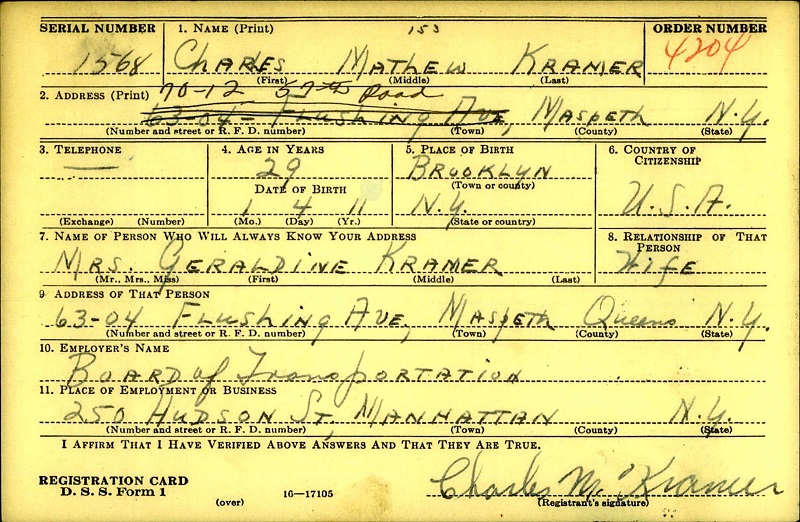 SERIAL NUMBER 1. NAME (Print) 153 ORDER NUMBER
1568 CHARLES MATHEW KRAMER 4204
(First) (Middle) (Last)
2. ADDRESS (Print) 70-12 57th Road
63-04 - FLUSHING AVE, MASPETH N.Y.
(Number and street or R. F. D. number) (Town) (County) (State)
3. TELEPHONE 4. AGE IN YEARS 5. PLACE OF BIRTH 6. COUNTRY OF CITIZENSHIP
— 29 BROOKLYN
DATE OF BIRTH (Town or county)
1 4 11 N.Y. U.S.A.
(Exchange) (Number) (Mo.) (Day) (Yr.) (State or country)
7. NAME OF PERSON WHO WILL ALWAYS KNOW YOUR ADDRESS 8. RELATIONSHIP OF THAT PERSON
MRS. GERALDINE KRAMER Wife
(Mr., Mrs., Miss) (First) (Middle) (Last)
9. ADDRESS OF THAT PERSON
63-04 FLUSHING AVE, MASPETH Queens N.Y.
(Number and street or R. F. D. number) (Town) (County) (State)
10. EMPLOYER'S NAME
BOARD of TRANSPORTATION
11. PLACE OF EMPLOYMENT OR BUSINESS
250 HUDSON ST, MANHATTAN N.Y.
(Number and street or R. F. D. number) (Town) (County) (State)
I AFFIRM THAT I HAVE VERIFIED ABOVE ANSWERS AND THAT THEY ARE TRUE.
REGISTRATION CARD
D. S. S. Form 1 16—17105 Charles M. Kramer
(over) (Registrant's signature)